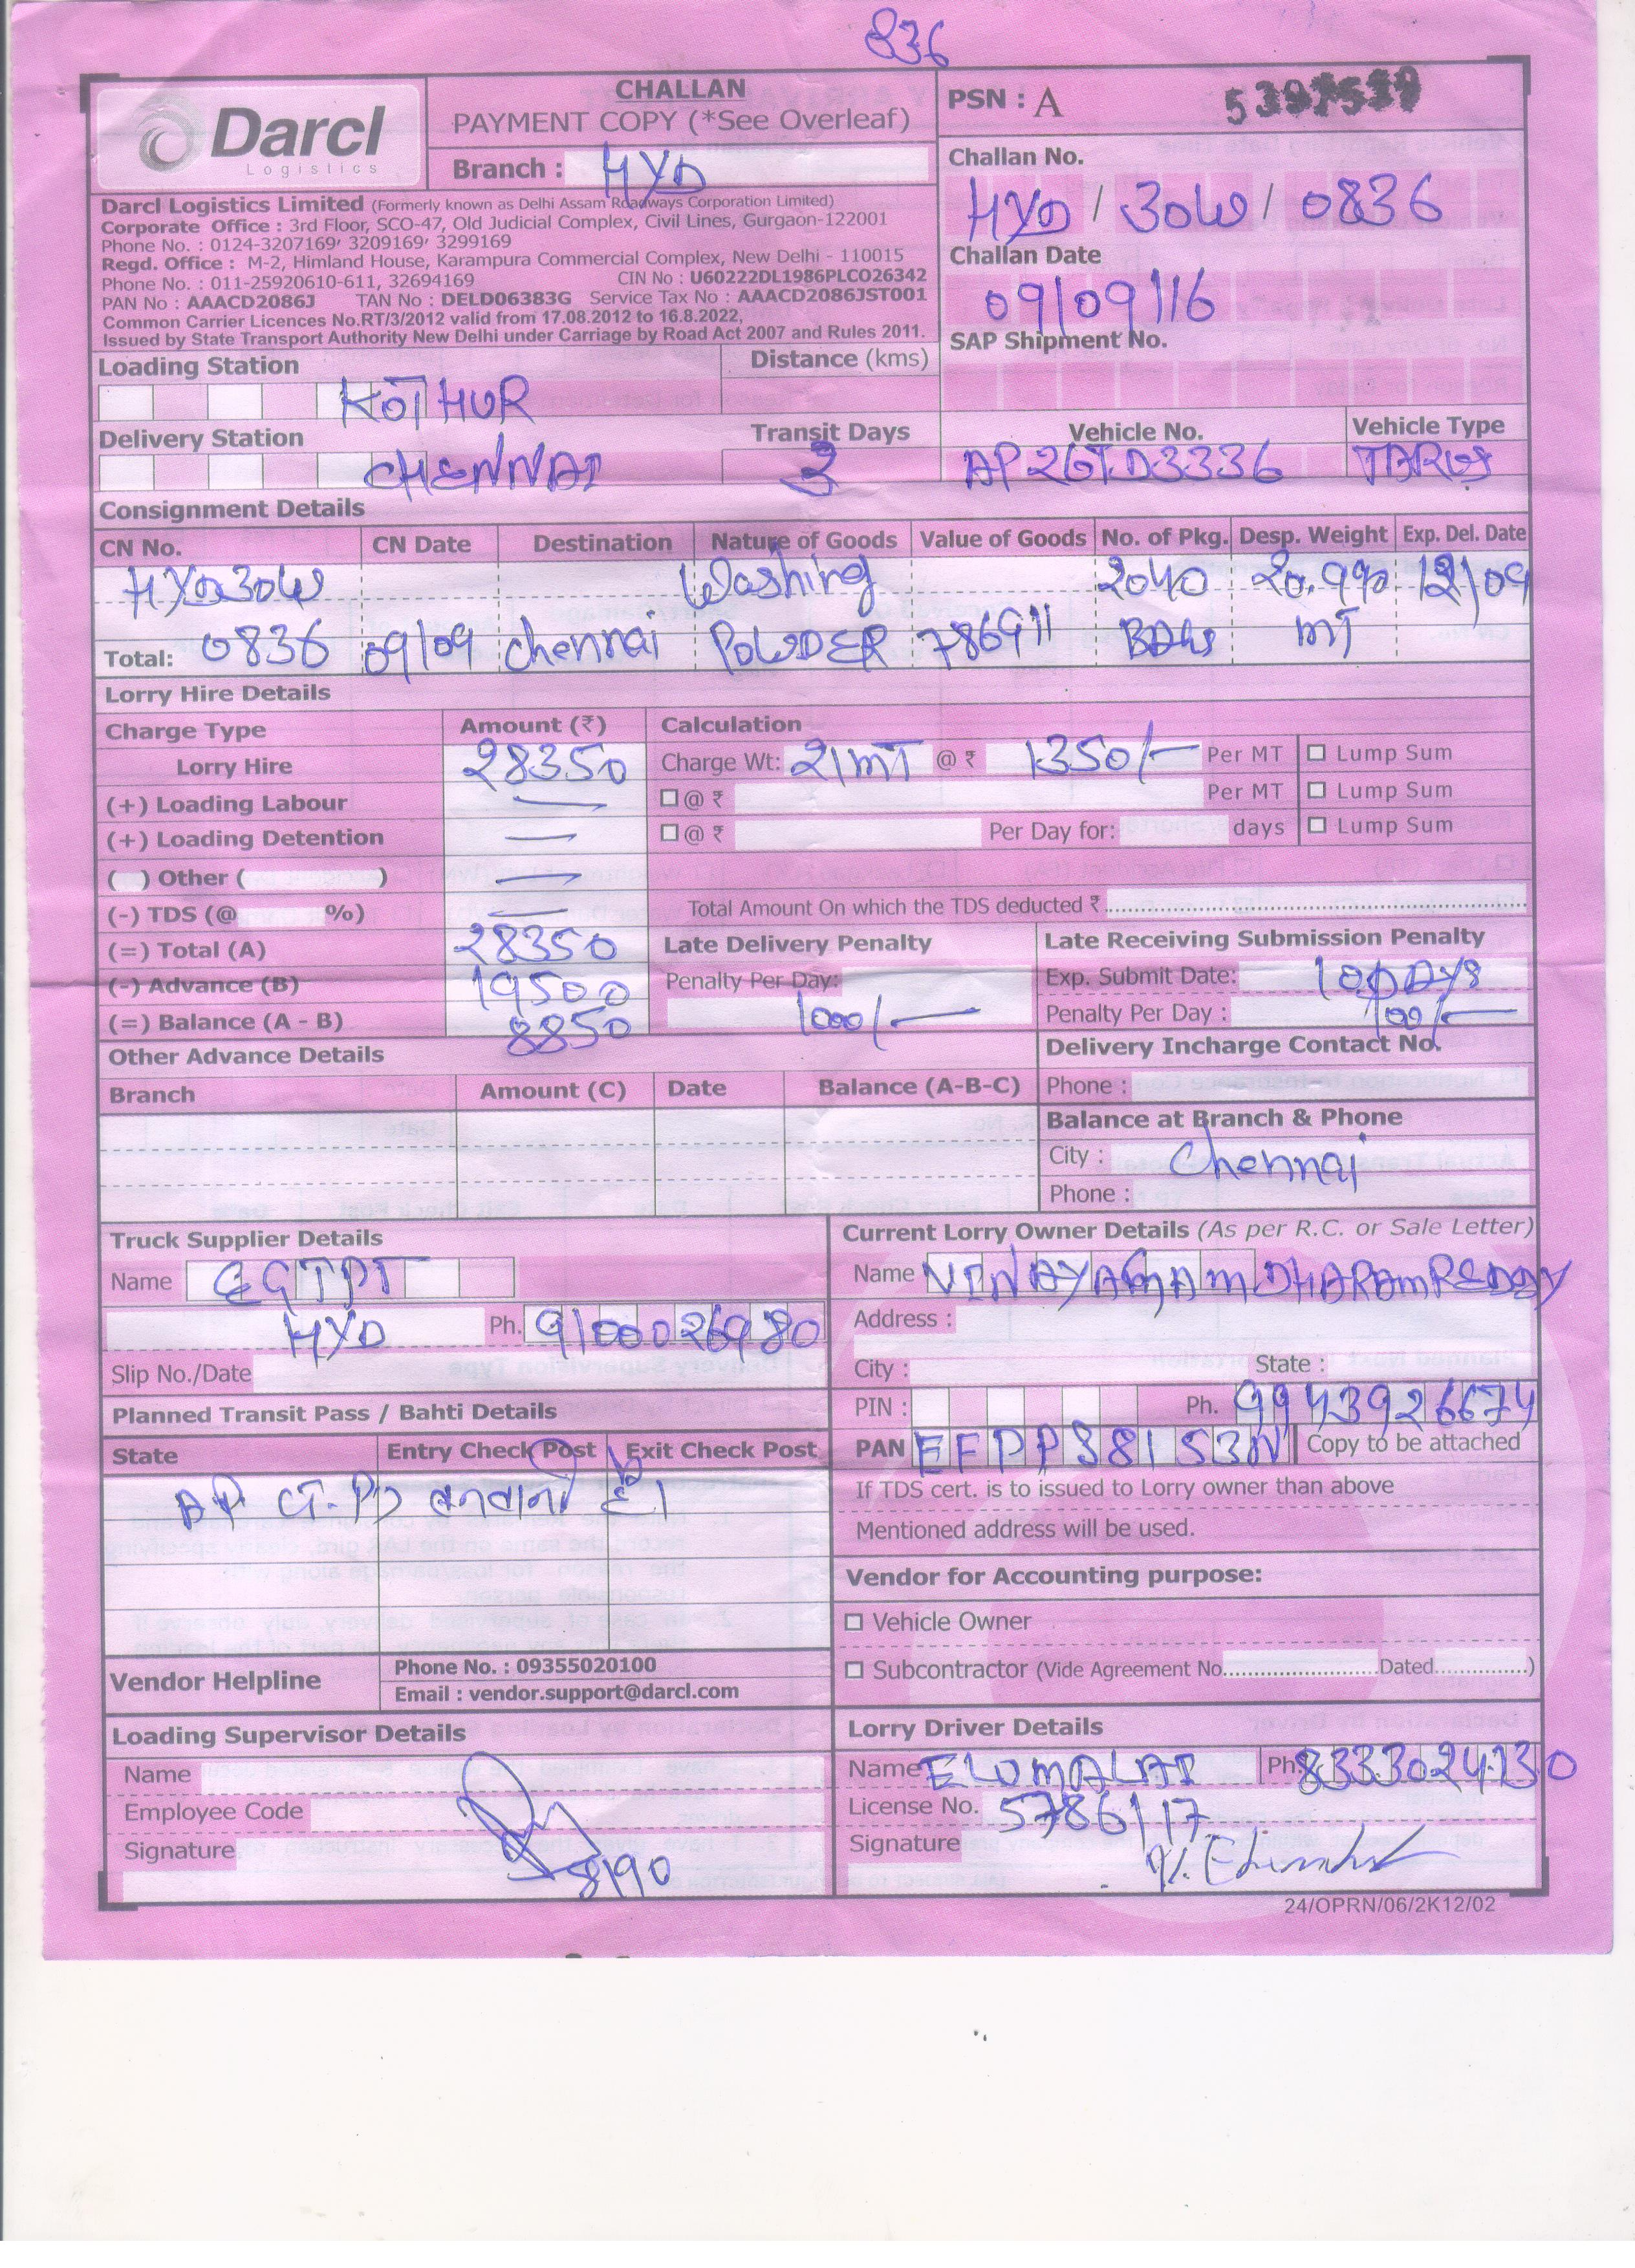 836
Darcl
Logistics
CHALLAN
PAYMENT COPY (*See Overleaf)
Branch : HYD
PSN : A
Challan No.
HYD / 30W / 0836
Challan Date
09/09/16
SAP Shipment No.
Darcl Logistics Limited (Formerly known as Delhi Assam Roadways Corporation Limited)
Corporate Office : 3rd Floor, SCO-47, Old Judicial Complex, Civil Lines, Gurgaon-122001
Phone No. : 0124-3207169, 3209169, 3299169
Regd. Office : M-2, Himland House, Karampura Commercial Complex, New Delhi - 110015
Phone No. : 011-25920610-611, 32694169 CIN No : U60222DL1986PLCO26342
PAN No : AAACD2086J TAN No : DELD06383G Service Tax No : AAACD2086JST001
Common Carrier Licences No.RT/3/2012 valid from 17.08.2012 to 16.8.2022,
Issued by State Transport Authority New Delhi under Carriage by Road Act 2007 and Rules 2011.
Loading Station KOTHUR Distance (kms)
Delivery Station CHENNAI Transit Days 3
Vehicle No. AP26TD3336 Vehicle Type
Consignment Details
CN No. CN Date Destination Nature of Goods Value of Goods No. of Pkg. Desp. Weight Exp. Del. Date
HYD30W Washing 2040 20.990 12/09
Total: 0836 09/09 Chennai POWDER 786911 BAGS MT
Lorry Hire Details
Charge Type Amount (₹) Calculation
Lorry Hire 28350 Charge Wt: 21MT @ ₹ 1350/- Per MT Lump Sum
(+) Loading Labour — @ ₹ Per MT Lump Sum
(+) Loading Detention — @ ₹ Per Day for: days Lump Sum
( ) Other ( ) —
(-) TDS (@ %) — Total Amount On which the TDS deducted ₹
(=) Total (A) 28350
(-) Advance (B) 19500
(=) Balance (A - B) 8850
Late Delivery Penalty
Penalty Per Day:
1000/-
Late Receiving Submission Penalty
Exp. Submit Date: 10 DAYS
Penalty Per Day : 100/-
Other Advance Details
Branch Amount (C) Date Balance (A-B-C)
Delivery Incharge Contact No.
Phone :
Balance at Branch & Phone
City : Chennai
Phone :
Truck Supplier Details
Name EGTPT
HYD Ph. 9100026980
Slip No./Date
Current Lorry Owner Details (As per R.C. or Sale Letter)
Name VINAYAGAM DHARAMREDDY
Address :
City : State :
PIN : Ph. 9943926674
PAN EFPPS8153N Copy to be attached
If TDS cert. is to issued to Lorry owner than above
Mentioned address will be used.
Planned Transit Pass / Bahti Details
State Entry Check Post Exit Check Post
AP है।
Vendor for Accounting purpose:
Vehicle Owner
Subcontractor (Vide Agreement No.............Dated.............)
Vendor Helpline
Phone No. : 09355020100
Email : vendor.support@darcl.com
Loading Supervisor Details
Name
Employee Code
Signature
8190
Lorry Driver Details
Name ELUMALAI Ph. 8333024130
License No. 5786/17
Signature
24/OPRN/06/2K12/02